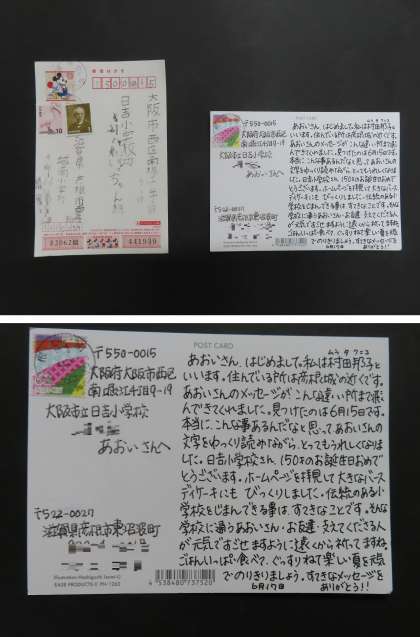 550 0015
大阪市西区南堀江
日吉小学校内
441939
POST CARD
〒550-0015
大阪府大阪市西区
南堀江4丁目9-19
大阪市立日吉小学校
あおいさんへ
〒522-0027
滋賀県彦根市東沼波町
Illustration Hashiguchi
EASE PRODUCTS
4538480737520
ムラタクニコ
あおいさん、はじめまして。私は村田邦子と
いいます。住んでいる所は彦根城の近くです。
あおいさんのメッセージが、こんな遠い所まで飛
んできてくれました。見つけたのは6月15日です。
本当に、こんな事あるんだなと思って、あおいさんの
文字をゆっくり読みながら、とってもうれしくなりま
した。日吉小学校さん、150才のお誕生日おめで
とうございます。ホームページを拝見して大きなバース
ディケーキにもびっくりしました。伝統のある小
学校をじまんできる事は、すてきなことです。そんな
学校に通うあおいさん・お友達・支えてくださる人
が元気ですごせますように遠くから祈ってますね。
ごはんいっぱい食べて、ぐっすりねて楽しい夏を元気
でのりきりましょう。すてきなメッセージを
6月17日 ありがとう!!